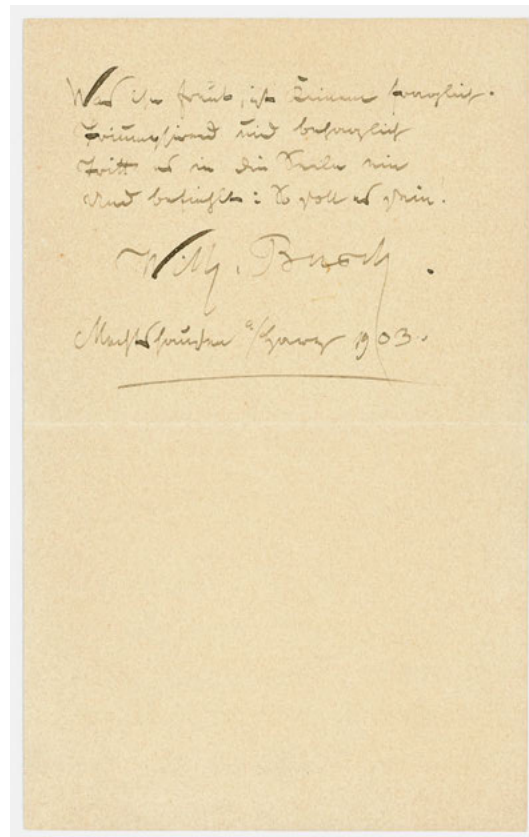 Was ihn freut, ist keinem fraglich.
Triumphirend und behaglich
Tritt es in die Seele ein
Und befiehlt: So soll es sein!
Wilh. Busch.
Mechtshausen a/Harz 1903.